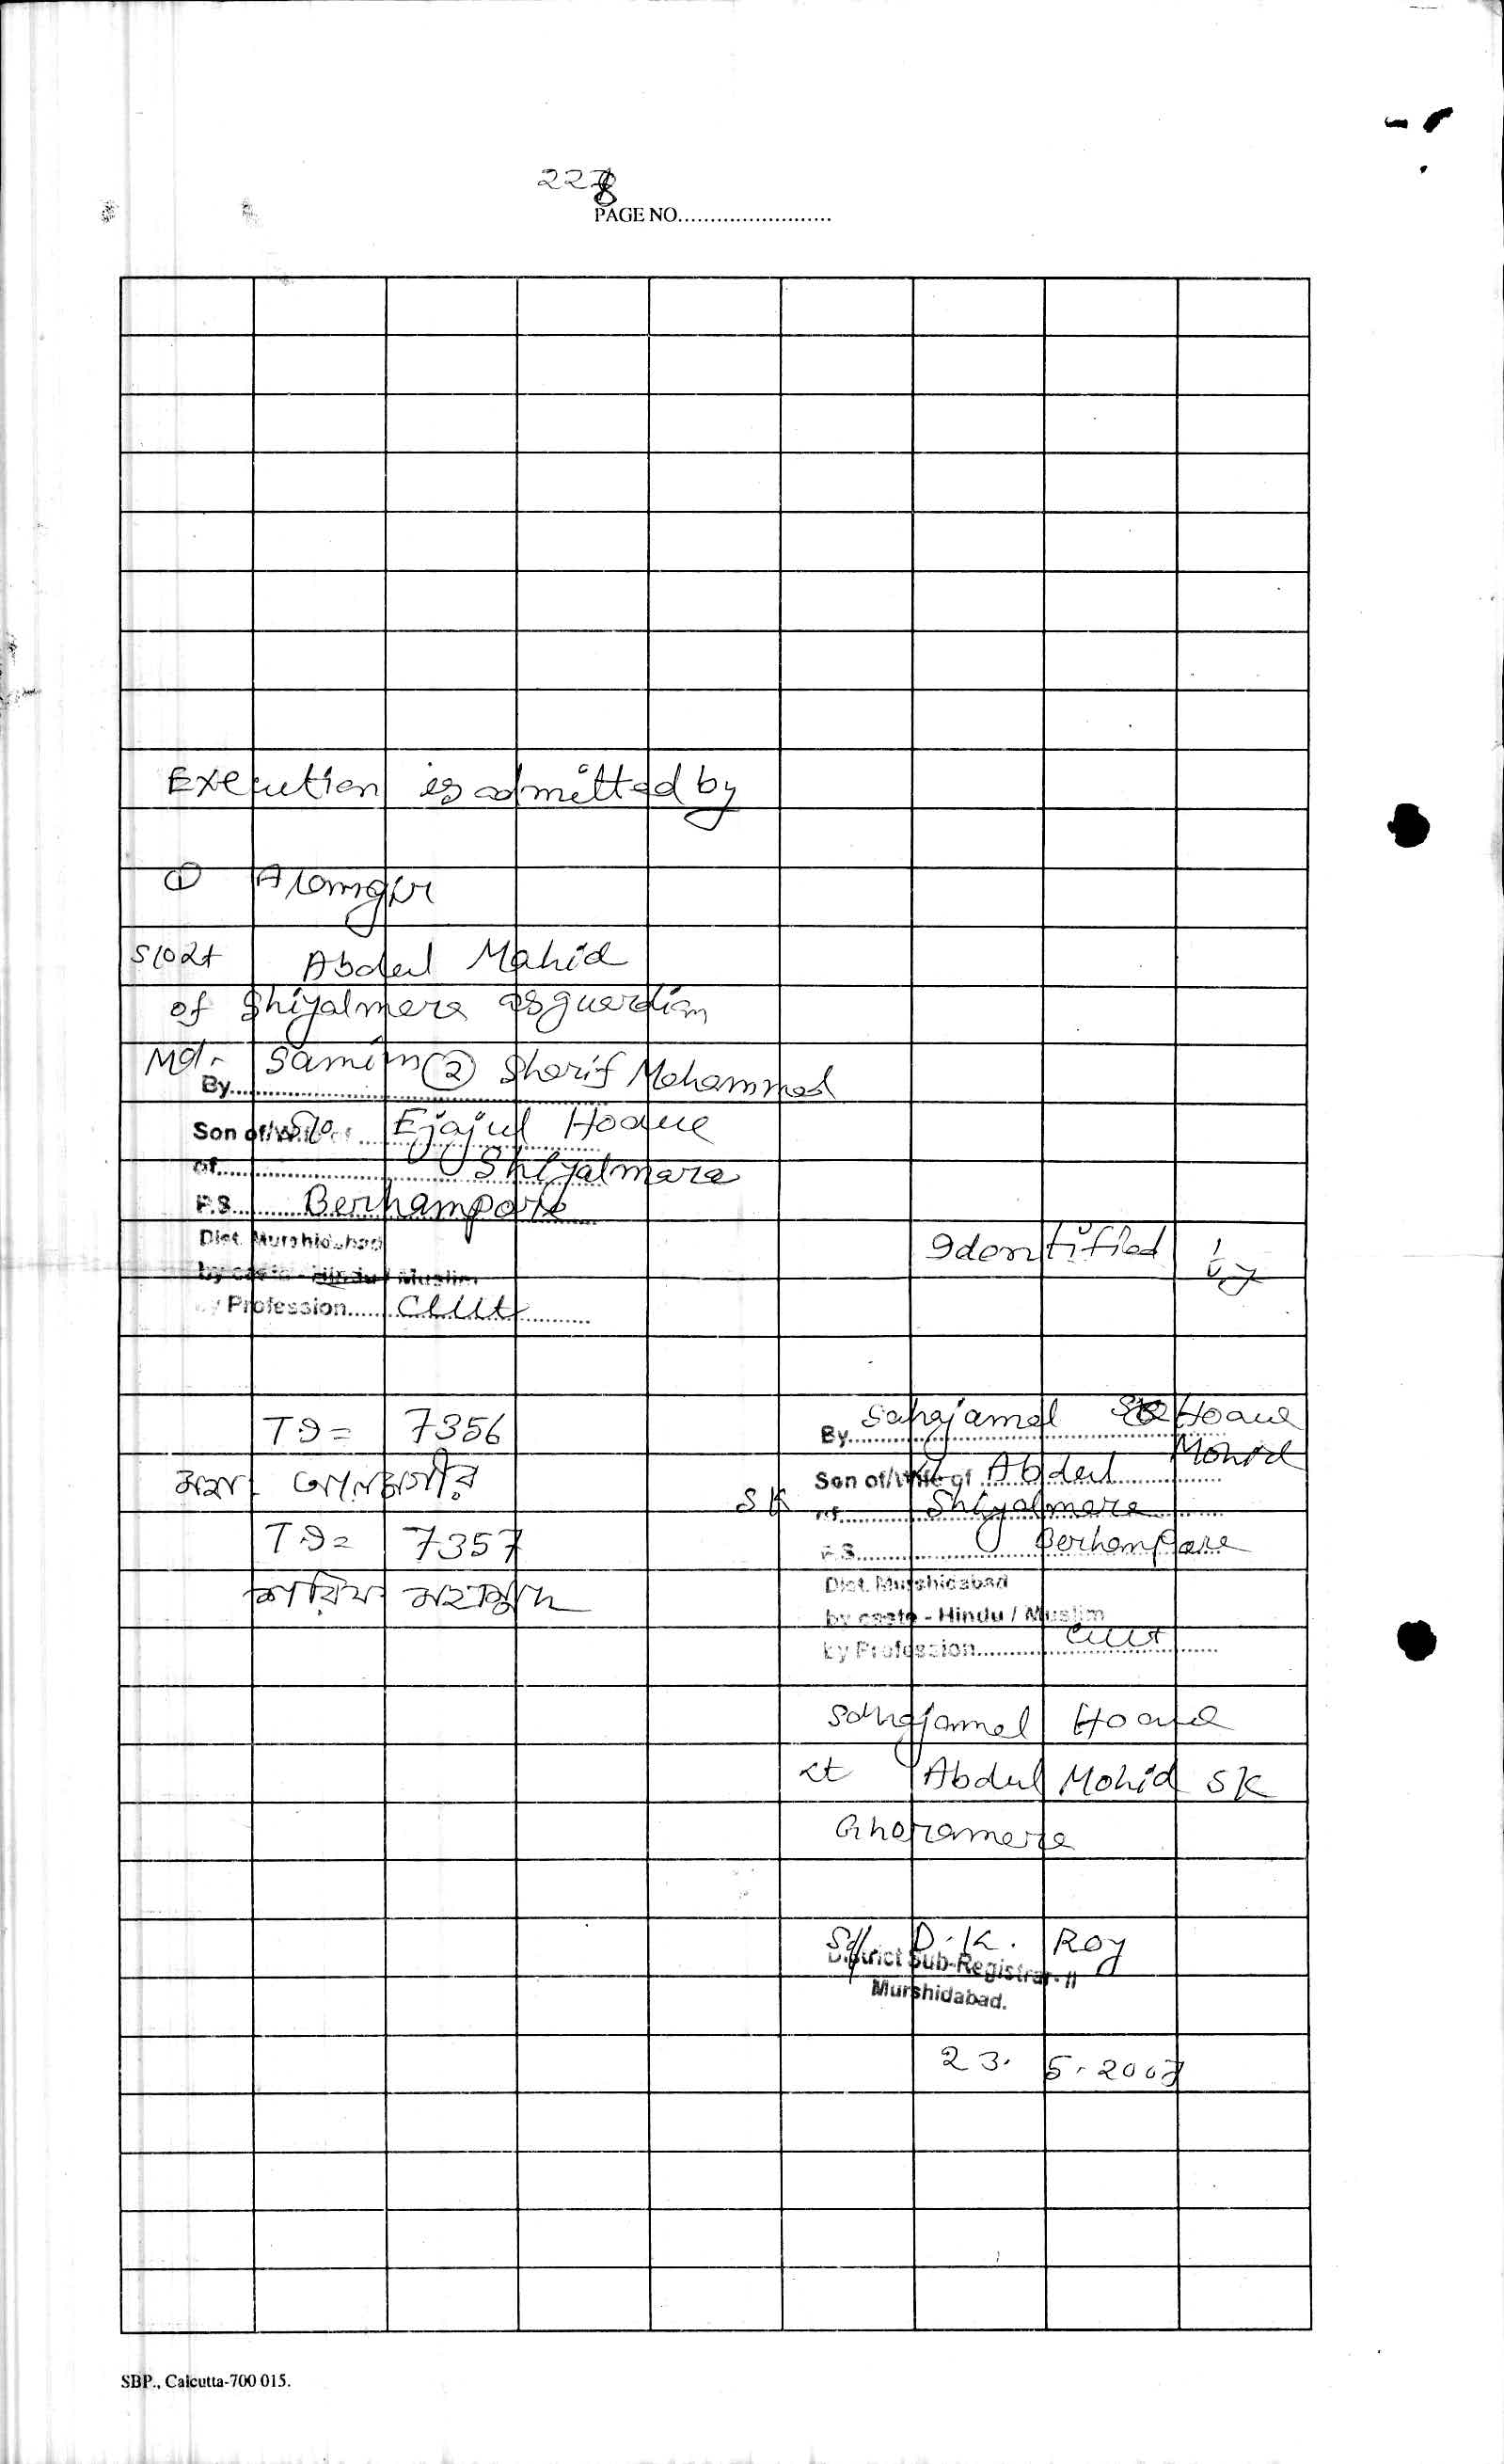 228
PAGE NO.........................
Execution is admitted by
① Alomgir
S/o Lt Abdul Mahid
of Shiyalmara as guardian
Md. Samim ② Sharif Mohammad
By.........................
Son of/Wife of S/o Ejajul Hoque
of......................... Shiyalmara
P.S. Berhampore
Dist. Murshidabad
by caste - Hindu / Muslim
by Profession....... Cult
Identified by
TI = 7356
মহঃ আলমগীর
TI = 7357
সারিফ মহম্মদ
By Sahajamal Hoque
Son of/Wife of Lt Abdul Mohid
SK
of Shiyalmara
P.S. Berhampore
Dist. Murshidabad
by caste - Hindu / Muslim
by Profession....... Cult
Sahajamal Hoque
Lt Abdul Mohid SK
Ghoramara
Sd/ D. K. Roy
District Sub-Registrar-II
Murshidabad.
23. 5. 2007
SBP., Calcutta-700 015.